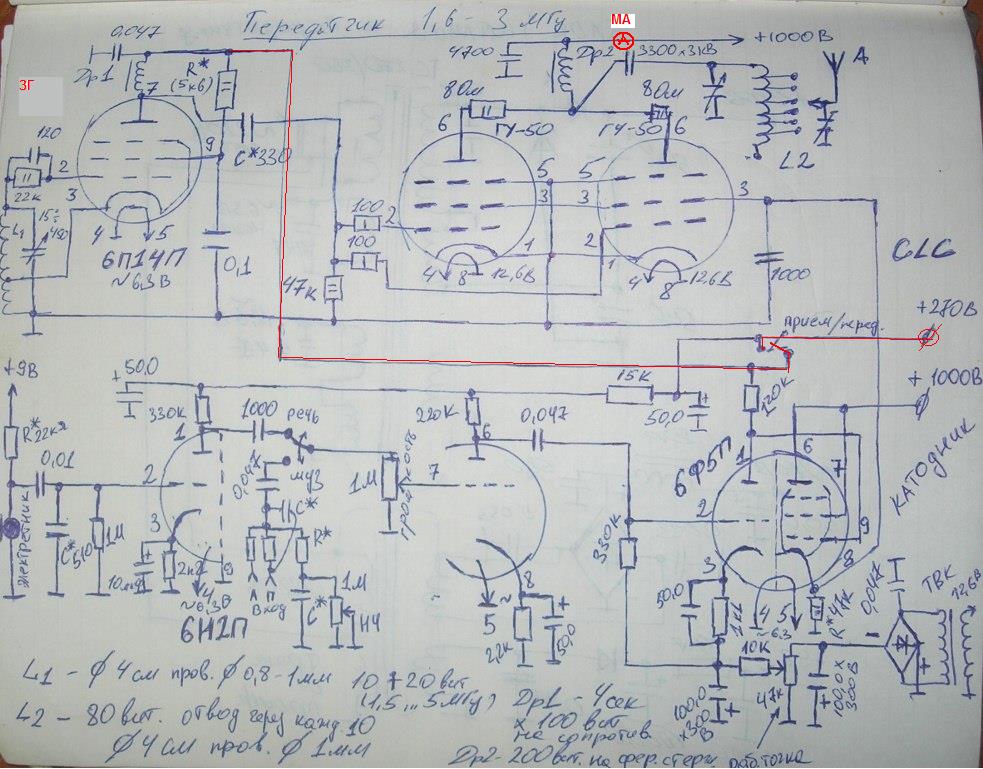 Передатчик 1,6 3 мГц
МА
0.047
4700
Др2
3300x3кВ
+1000В
Др1
R*
(5к6)
7
80м
80м
А
ЗГ
6
ГУ-50
ГУ-50
6
120
9
C*330
L2
2
5
5
22к
3
100
2
3
3
3
L1
15÷
450
4
5
100
2
1
1
6П14П
~6,3В
0,1
47к
4
8
12,6В
4
8
12,6В
1000
CLG
+270В
прием/перед.
+9В
50,0
15К
+1000В
330к
1000
речь
220к
0,047
50,0
120к
R*22кл
1
6
6Ф5П
1
6
7
КАТОДНИК
0,01
2
0,047
муз
1М
громкость
7
2
9
электретник
C*
510
1М
3
C*
R*
330к
3
8
10мкф
2к2
4
9
А
П
Вход
C*
1М
НЧ
8
50,0
1к1
4
5
~6.3
R*47к
0,047
ТВК
12,6В
~6,3В
6Н2П
5
~
2,2к
50,0
10к
47к
100,0x
300В
L1 - ф 4 см пров. ф 0,8-1мм 10+20 вит
(1,5...5МГц)
L2 - 80 вит. отвод через кажд. 10
ф 4 см пров. ф 1мм
Др1 - 4сек
x 100 вит
на сопротив.
100,0
x300
В
Др2-200 вит. на фер. стерж
раб. точка